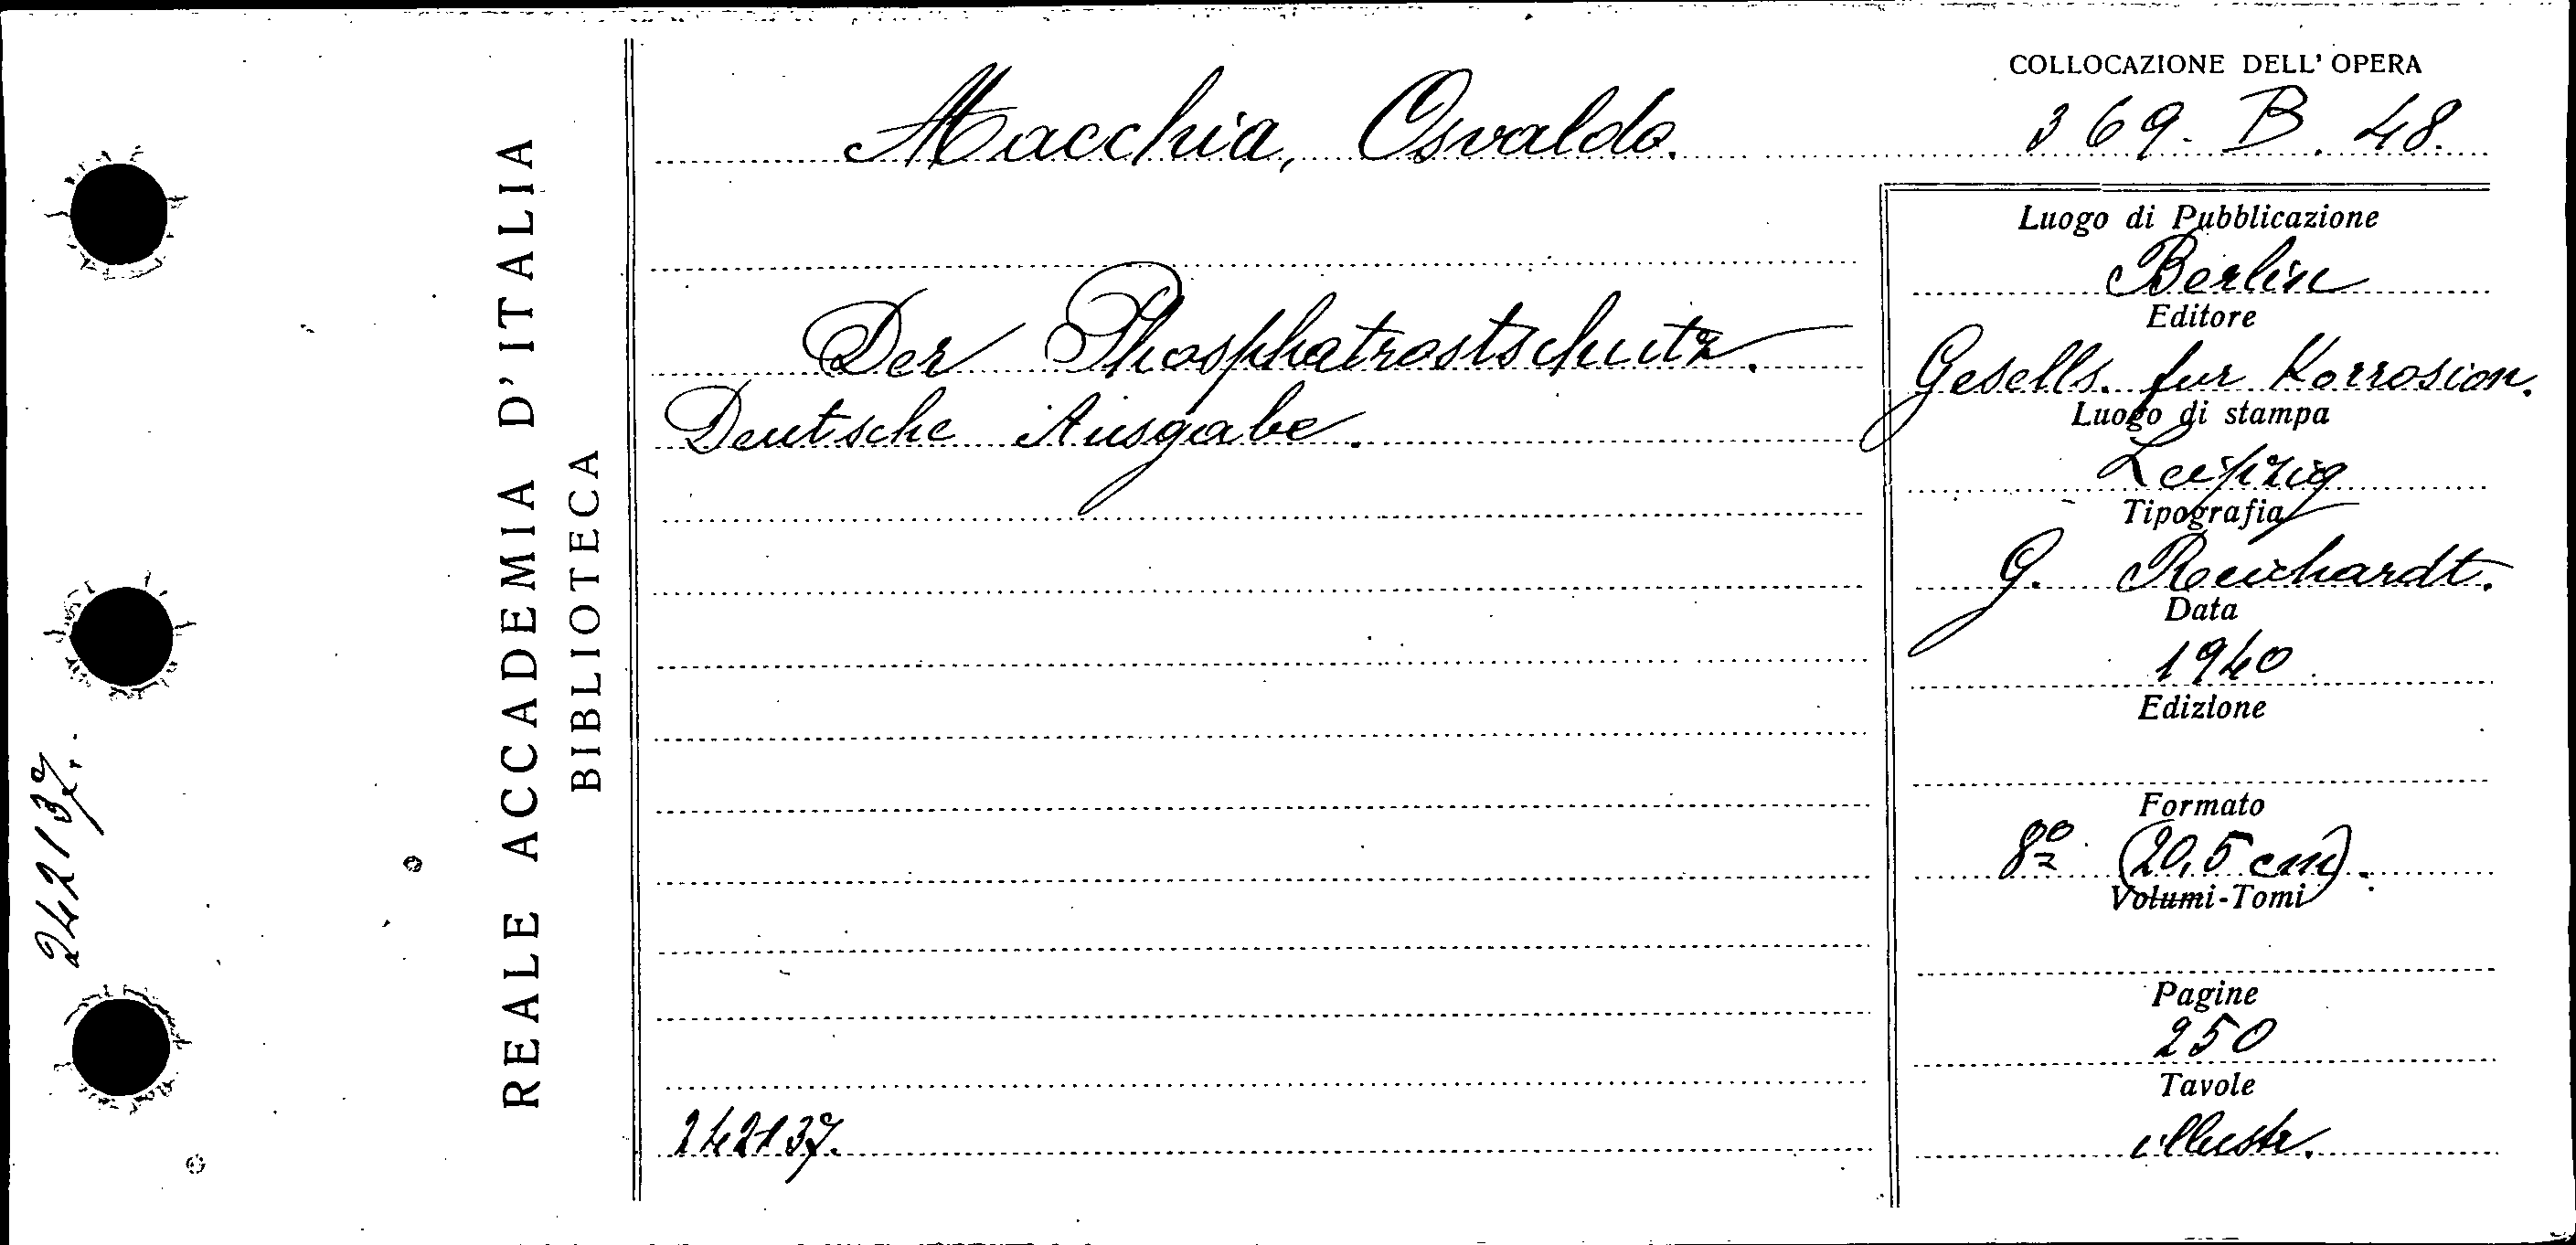 242137.
REALE ACCADEMIA D'ITALIA
BIBLIOTECA
Macchia, Osvaldo.
Der Phosphatrostschutz.
Deutsche Ausgabe.
242137.
COLLOCAZIONE DELL' OPERA
369. B. 48.
Luogo di Pubblicazione
Berlin
Editore
Gesells. fur Korrosion.
Luogo di stampa
Leipzig
Tipografia
G. Reichardt.
Data
1940
Edizione
Formato
8º (20,5 cm).
Volumi-Tomi
Pagine
250
Tavole
illustr.